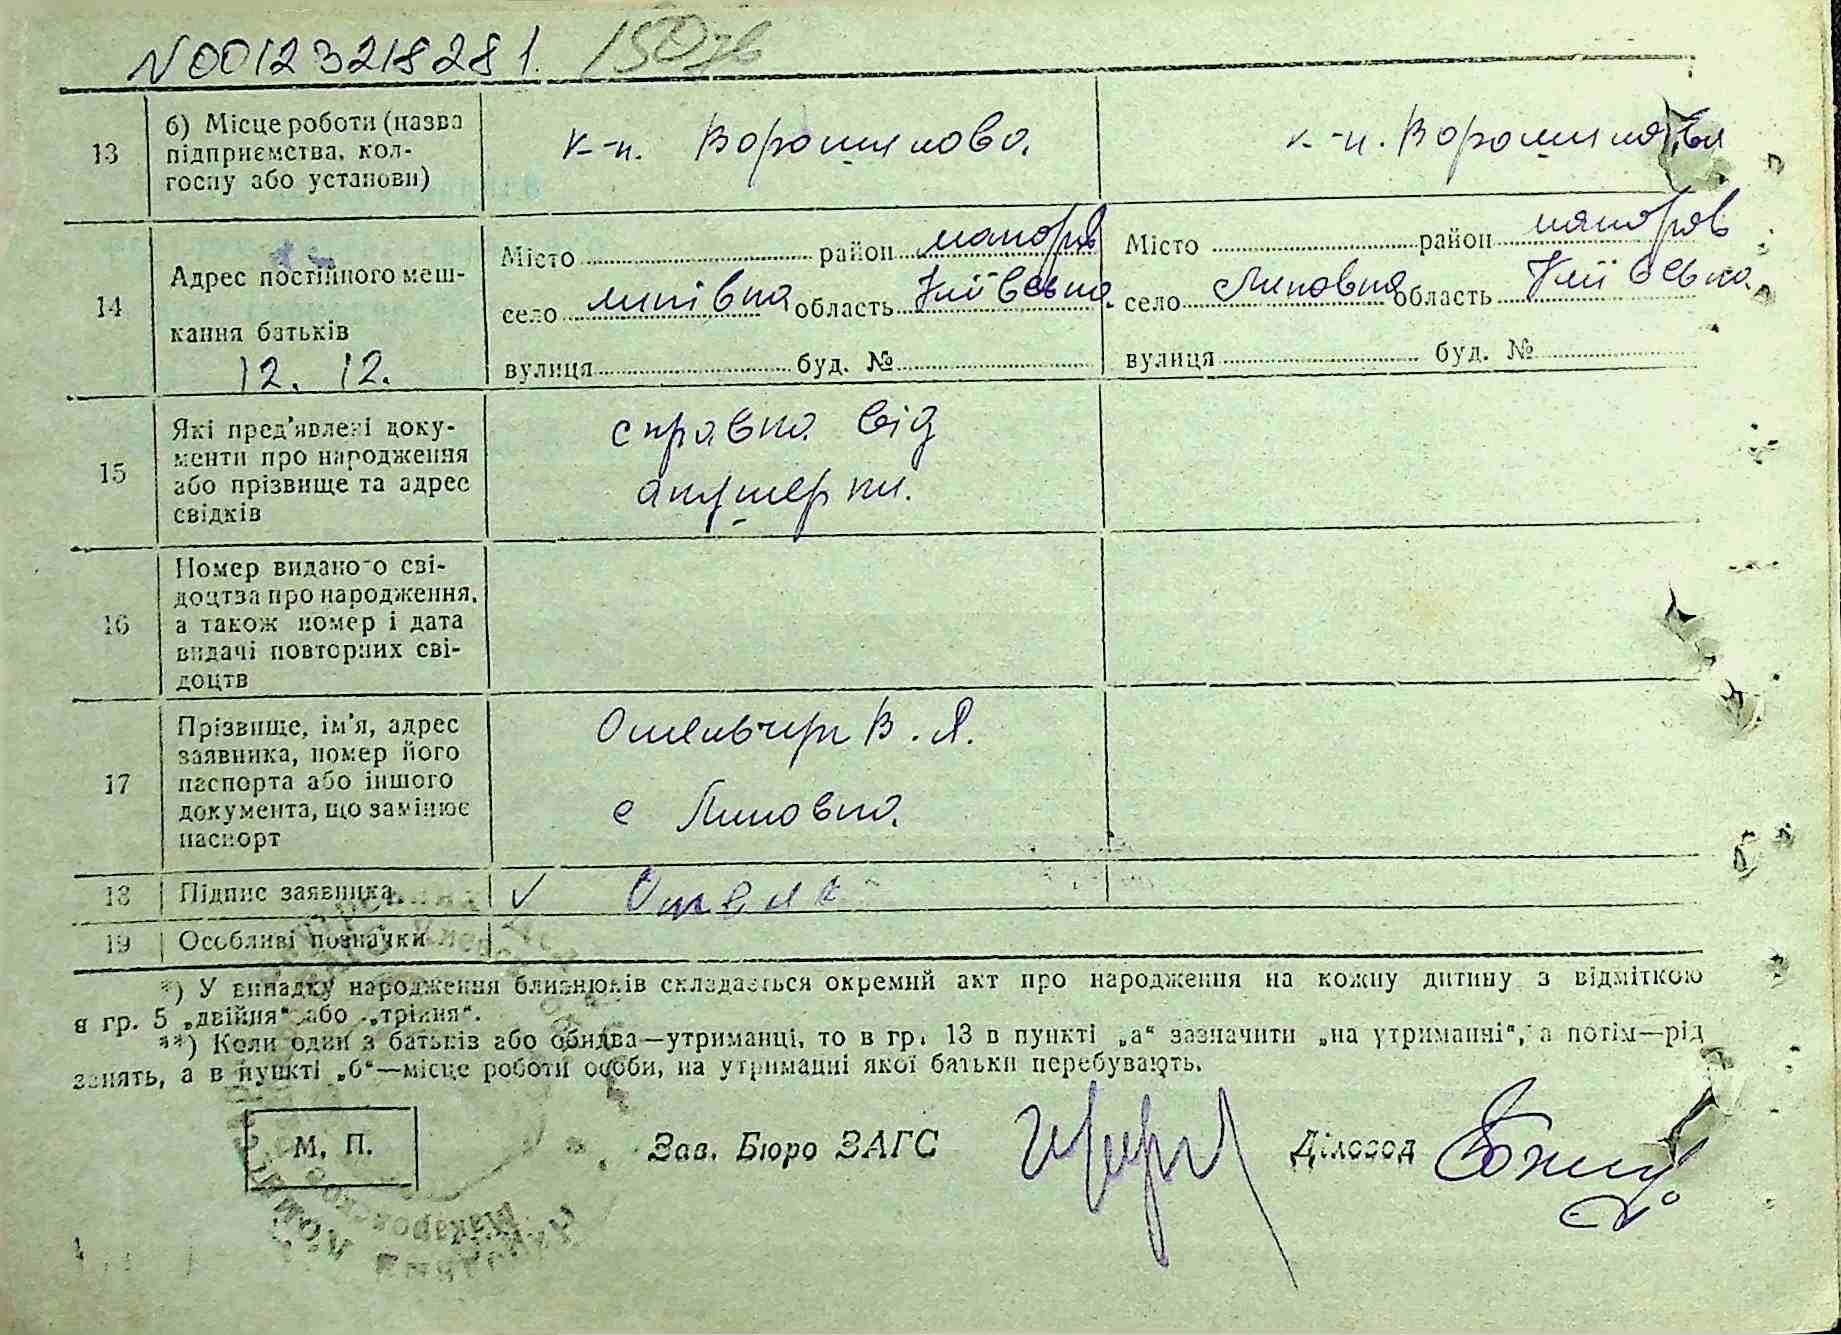 N00123218281. 150зв
13 б) Місце роботи (назва підприємства, колгоспу або установи) к-п. Ворошилова. к-п. Ворошилова
14 Адрес постійного мешкання батьків 12. 12.
Місто район макарів Місто район макарів
село липівка область Київська. село Липовка область Київська.
вулиця буд. № вулиця буд. №
15 Які пред'явлені документи про народження або прізвище та адрес свідків
справка від
акушерки.
16 Номер виданого свідоцтва про народження, а також номер і дата видачі повторних свідоцтв
17 Прізвище, ім'я, адрес заявника, номер його паспорта або іншого документа, що замінює паспорт
В. Я.
с Липовка.
18 Підпис заявника
19 Особливі позначки
*) У випадку народження близнюків складається окремий акт про народження на кожну дитину з відміткою
в гр. 5 „двійня“ або „трійня“.
**) Коли один з батьків або обидва—утриманці, то в гр. 13 в пункті „а“ зазначити „на утриманні“, а потім—рід
занять, а в пункті „б“—місце роботи особи, на утриманні якої батьки перебувають.
М. П. Зав. Бюро ЗАГС Діловод